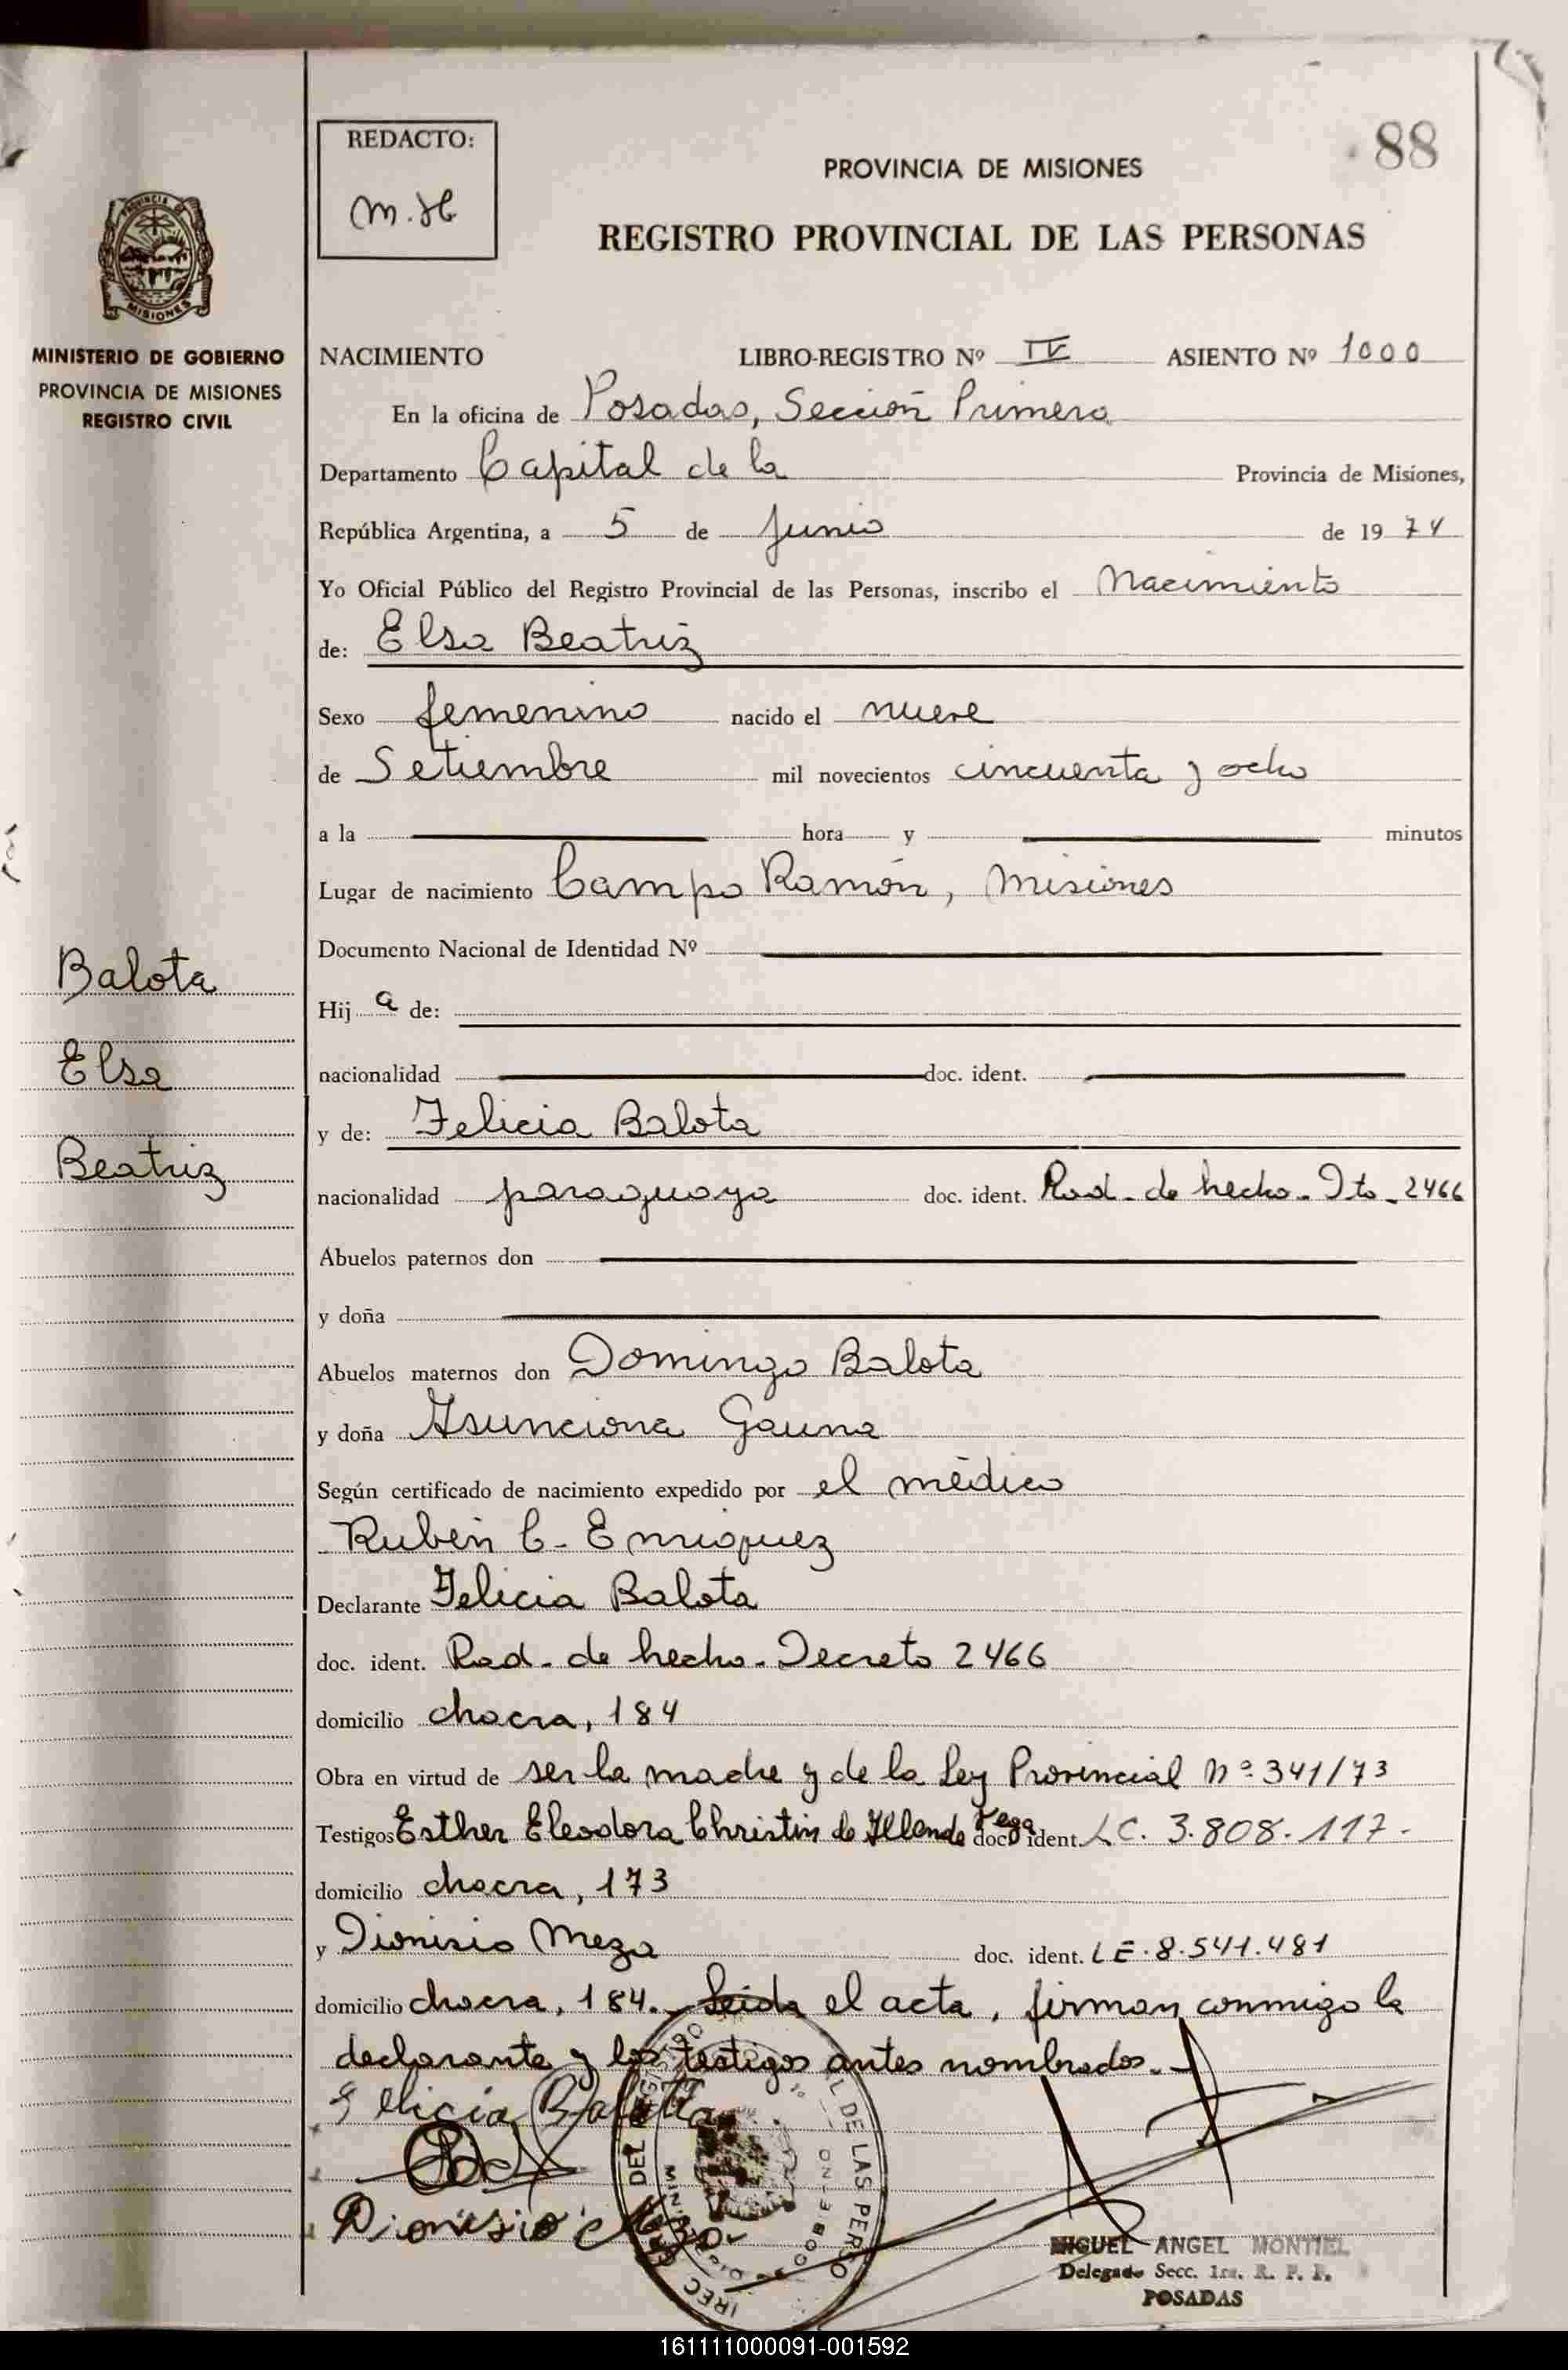 88
REDACTO:
M.H
PROVINCIA DE MISIONES
REGISTRO PROVINCIAL DE LAS PERSONAS
PROVINCIA DE
MISIONES
MINISTERIO DE GOBIERNO
PROVINCIA DE MISIONES
REGISTRO CIVIL
NACIMIENTO LIBRO-REGISTRO Nº IV ASIENTO Nº 1000
En la oficina de Posadas, Sección Primera
Departamento Capital de la Provincia de Misiones,
República Argentina, a 5 de Junio de 1974
Yo Oficial Público del Registro Provincial de las Personas, inscribo el Nacimiento
de: Elsa Beatriz
Sexo femenino nacido el nueve
de Setiembre mil novecientos cincuenta y ocho
a la hora y minutos
Lugar de nacimiento Campo Ramón, Misiones
Documento Nacional de Identidad Nº
Hija de:
nacionalidad doc. ident.
y de: Felicia Balota
nacionalidad paraguaya doc. ident. Rad. de hecho. Dto. 2466
Abuelos paternos don
y doña
Abuelos maternos don Domingo Balota
y doña Asunciona Gauna
Según certificado de nacimiento expedido por el médico
Rubén C. Enriquez
Declarante Felicia Balota
doc. ident. Rad. de hecho. Decreto 2466
domicilio chacra, 184
Obra en virtud de ser la madre y de la Ley Provincial Nº 341/73
Testigos Esther Eleodora Christin de Allende Vega doc. ident. LC. 3.808.117.-
domicilio chacra, 173
y Dionisio Meza doc. ident. LE.8.541.481
domicilio chacra, 184. Leida el acta, firman conmigo la
declarante y los testigos antes nombrados.-
Felicia Balotta
Dionisio Meza
MIGUEL ANGEL MONTIEL
Delegado Secc. 1ra. R. P. P.
POSADAS
Balota
Elsa
Beatriz
161111000091-001592